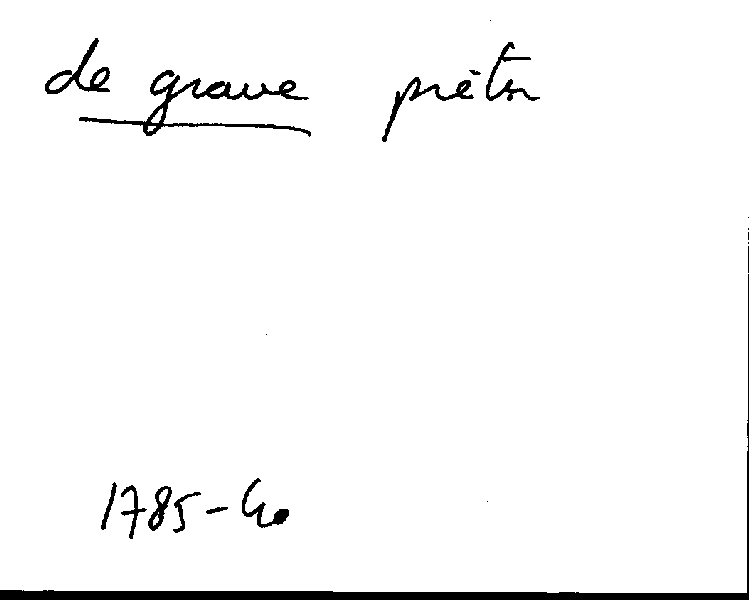 de grave prêtre
1785-40